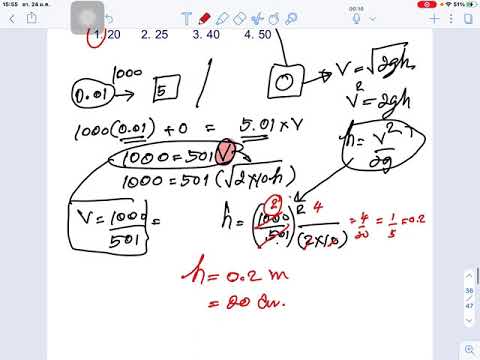 15:55 อา. 24 ม.ค.
00:16
1. 20 2. 25 3. 40 4. 50
1000
0.01 → 5
0 → V = √2gh
V² = 2gh
h = V²/2g
1000(0.01) + 0 = 5.01 × V
1000 = 501 V
1000 = 501 (√2×10h)
V = 1000/501 =
h = (1000/501)² 1/(2×10) = 4/20 = 1/5 = 0.2
2
4
h = 0.2 m
= 20 ซม.
36
47